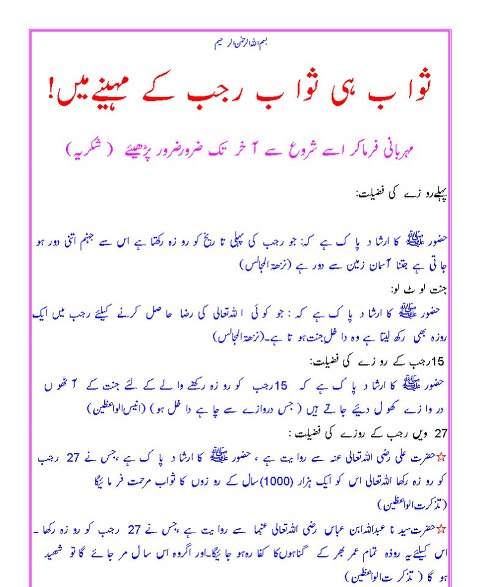 بسم اللہ الرحمٰن الرحیم
ثواب ہی ثواب رجب کے مہینے میں!
مہربانی فرماکر اسے شروع سے آخر تک ضرور ضرور پڑھیئے (شکریہ)
پہلے روزے کی فضیلت:
حضور ﷺ کا ارشاد پاک ہے کہ: جو رجب کی پہلی تاریخ کو روزہ رکھتا ہے اس سے جہنم اتنی دور ہو
جاتی ہے جتنا آسمان زمین سے دور ہے (نزھۃ المجالس)
جنت لوٹ لو:
حضور ﷺ کا ارشاد پاک ہے کہ : جو کوئی اللہ تعالٰی کی رضا حاصل کرنے کیلئے رجب میں ایک
روزہ بھی رکھ لیتا ہے وہ داخل جنت ہوتا ہے۔(نزھۃ المجالس)
15 رجب کے روزے کی فضیلت:
حضور ﷺ کا ارشاد پاک ہے کہ 15 رجب کو روزہ رکھنے والے کے لئے جنت کے آٹھوں
دروازے کھول دیئے جاتے ہیں (جس دروازے سے چاہے داخل ہو) (انیس الواعظین)
27 ویں رجب کے روزے کی فضیلت :
☆حضرت علی رضی اللہ تعالٰی عنہ سے روایت ہے ، حضور ﷺ کا ارشاد پاک ہے ،جس نے 27 رجب
کو روزہ رکھا اللہ تعالٰی اس کو ایک ہزار (1000) سال کے روزوں کا ثواب مرحمت فرمائیگا
(تذکرت الواعظین)
☆حضرت سیدنا عبداللہ ابن عباس رضی اللہ تعالٰی عنہما سے روایت ہے ،جس نے 27 رجب کو روزہ رکھا ۔
اس کیلئے یہ روزہ تمام عمر بھر کے گناہوں کا کفارہ ہو جائیگا۔اور اگر وہ اس سال مر جائے گا تو شھید
ہو گا (تذکرت الواعظین)